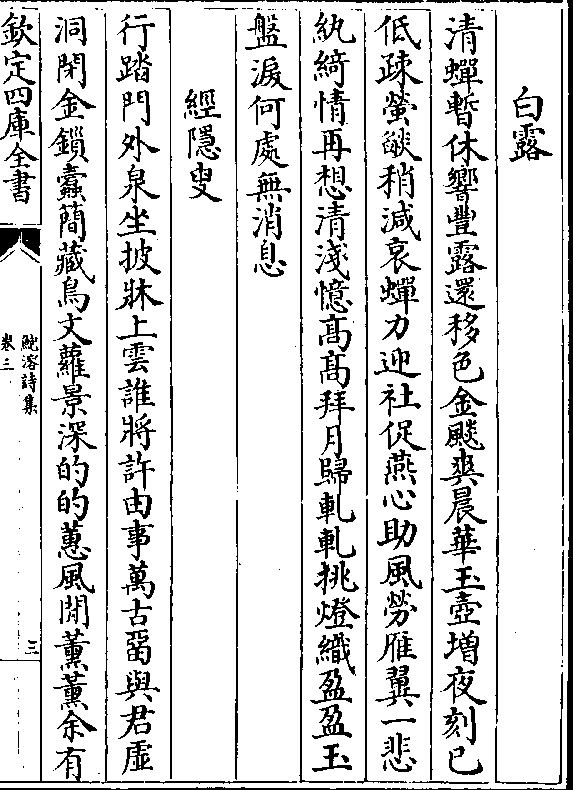 白露
清蟬暫休響豐露還移色金飈爽晨華玉壺増夜刻已
低疎螢燄稍減哀蟬力迎社促燕心助風勞雁翼一悲
紈綺情再想清淺憶髙髙拜月歸軋軋挑燈織盈盈玉
盤淚何處無消息
經隱叟
行踏門外泉坐披牀上雲誰將許由事萬古畱與君虛
洞閉金鎖蠧簡藏鳥文蘿景深的的蕙風閒薰薰余有
欽定四庫全書
鮑溶詩集
卷三
三